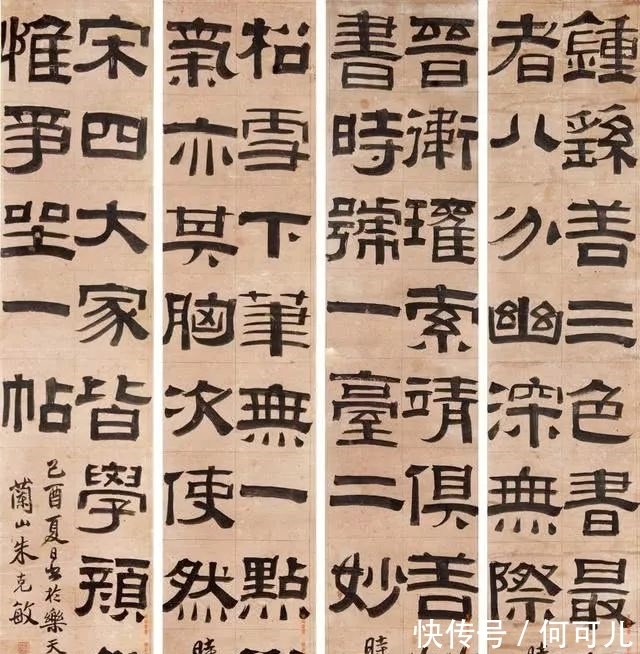 鍾繇善三色書最
者八分幽深無際
晉衛瓘索靖俱善
書時號一臺二妙
松雪下筆無一點
氣亦其胸次使然
宋四大家皆學顏
惟爭坐一帖
己酉夏日書於樂天
蘭山朱克敏
快传号 / 何可儿